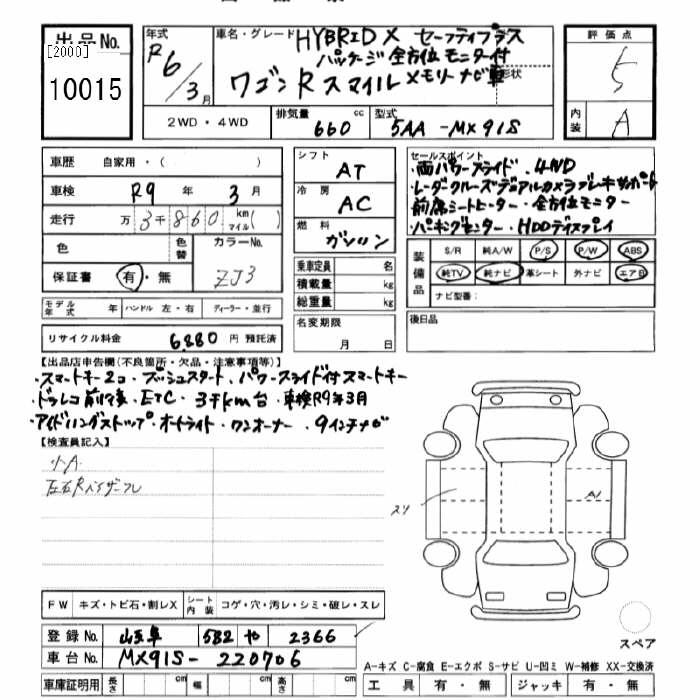 出品No.
[2000]
10015
年式
R6/3月
車名・グレード
HYBRID X セーフティプラス
パッケージ 全方位モニター付
ワゴンRスマイル メモリーナビ車
形状
2WD・4WD
排気量
660 cc
型式
5AA-MX91S
評価点
5
内装
A
車歴 自家用・( )
車検 R9年 3月
走行 万 3千860 km マイル( )
色
色替
カラーNo.
ZJ3
保証書 有・無
モデル年式 年 ハンドル 左・右 ディーラー・並行
リサイクル料金 6,880 円 預託済
シフト
AT
冷房
AC
燃料
ガソリン
乗車定員 名
積載量 kg
総重量 kg
名変期限
月 日
セールスポイント
・両パワースライド・4WD
・レーダクルーズ・デュアルカメラブレーキサポート
・前席シートヒーター・全方位モニター
・パーキングセンサー・HDDディスプレイ
装備品
S/R 純A/W P/S P/W ABS
純TV 純ナビ 革シート 外ナビ エアB
ナビ型番:
後日品
【出品店申告欄(不良箇所・欠品・注意事項等)】
・スマートキー2コ・プッシュスタート・パワースライド付スマートキー
・ドラレコ前後・ETC・3千km台・車検R9年3月
・アイドリングストップ・オートライト・ワンオーナー・9インチナビ
【検査員記入】
小A
左右Rバイザーフレ
スリ
A1
FW キズ・トビ石・割レX シート内装 コゲ・穴・汚レ・シミ・破レ・スレ
登録No. 582 や 2366
車台No. MX91S-220706
車庫証明用 長さ cm 幅 cm 高さ cm
スペア
A-キズ C-腐食 E-エクボ S-サビ U-凹ミ W-補修 XX-交換済
工具 有・無 ジャッキ 有・無